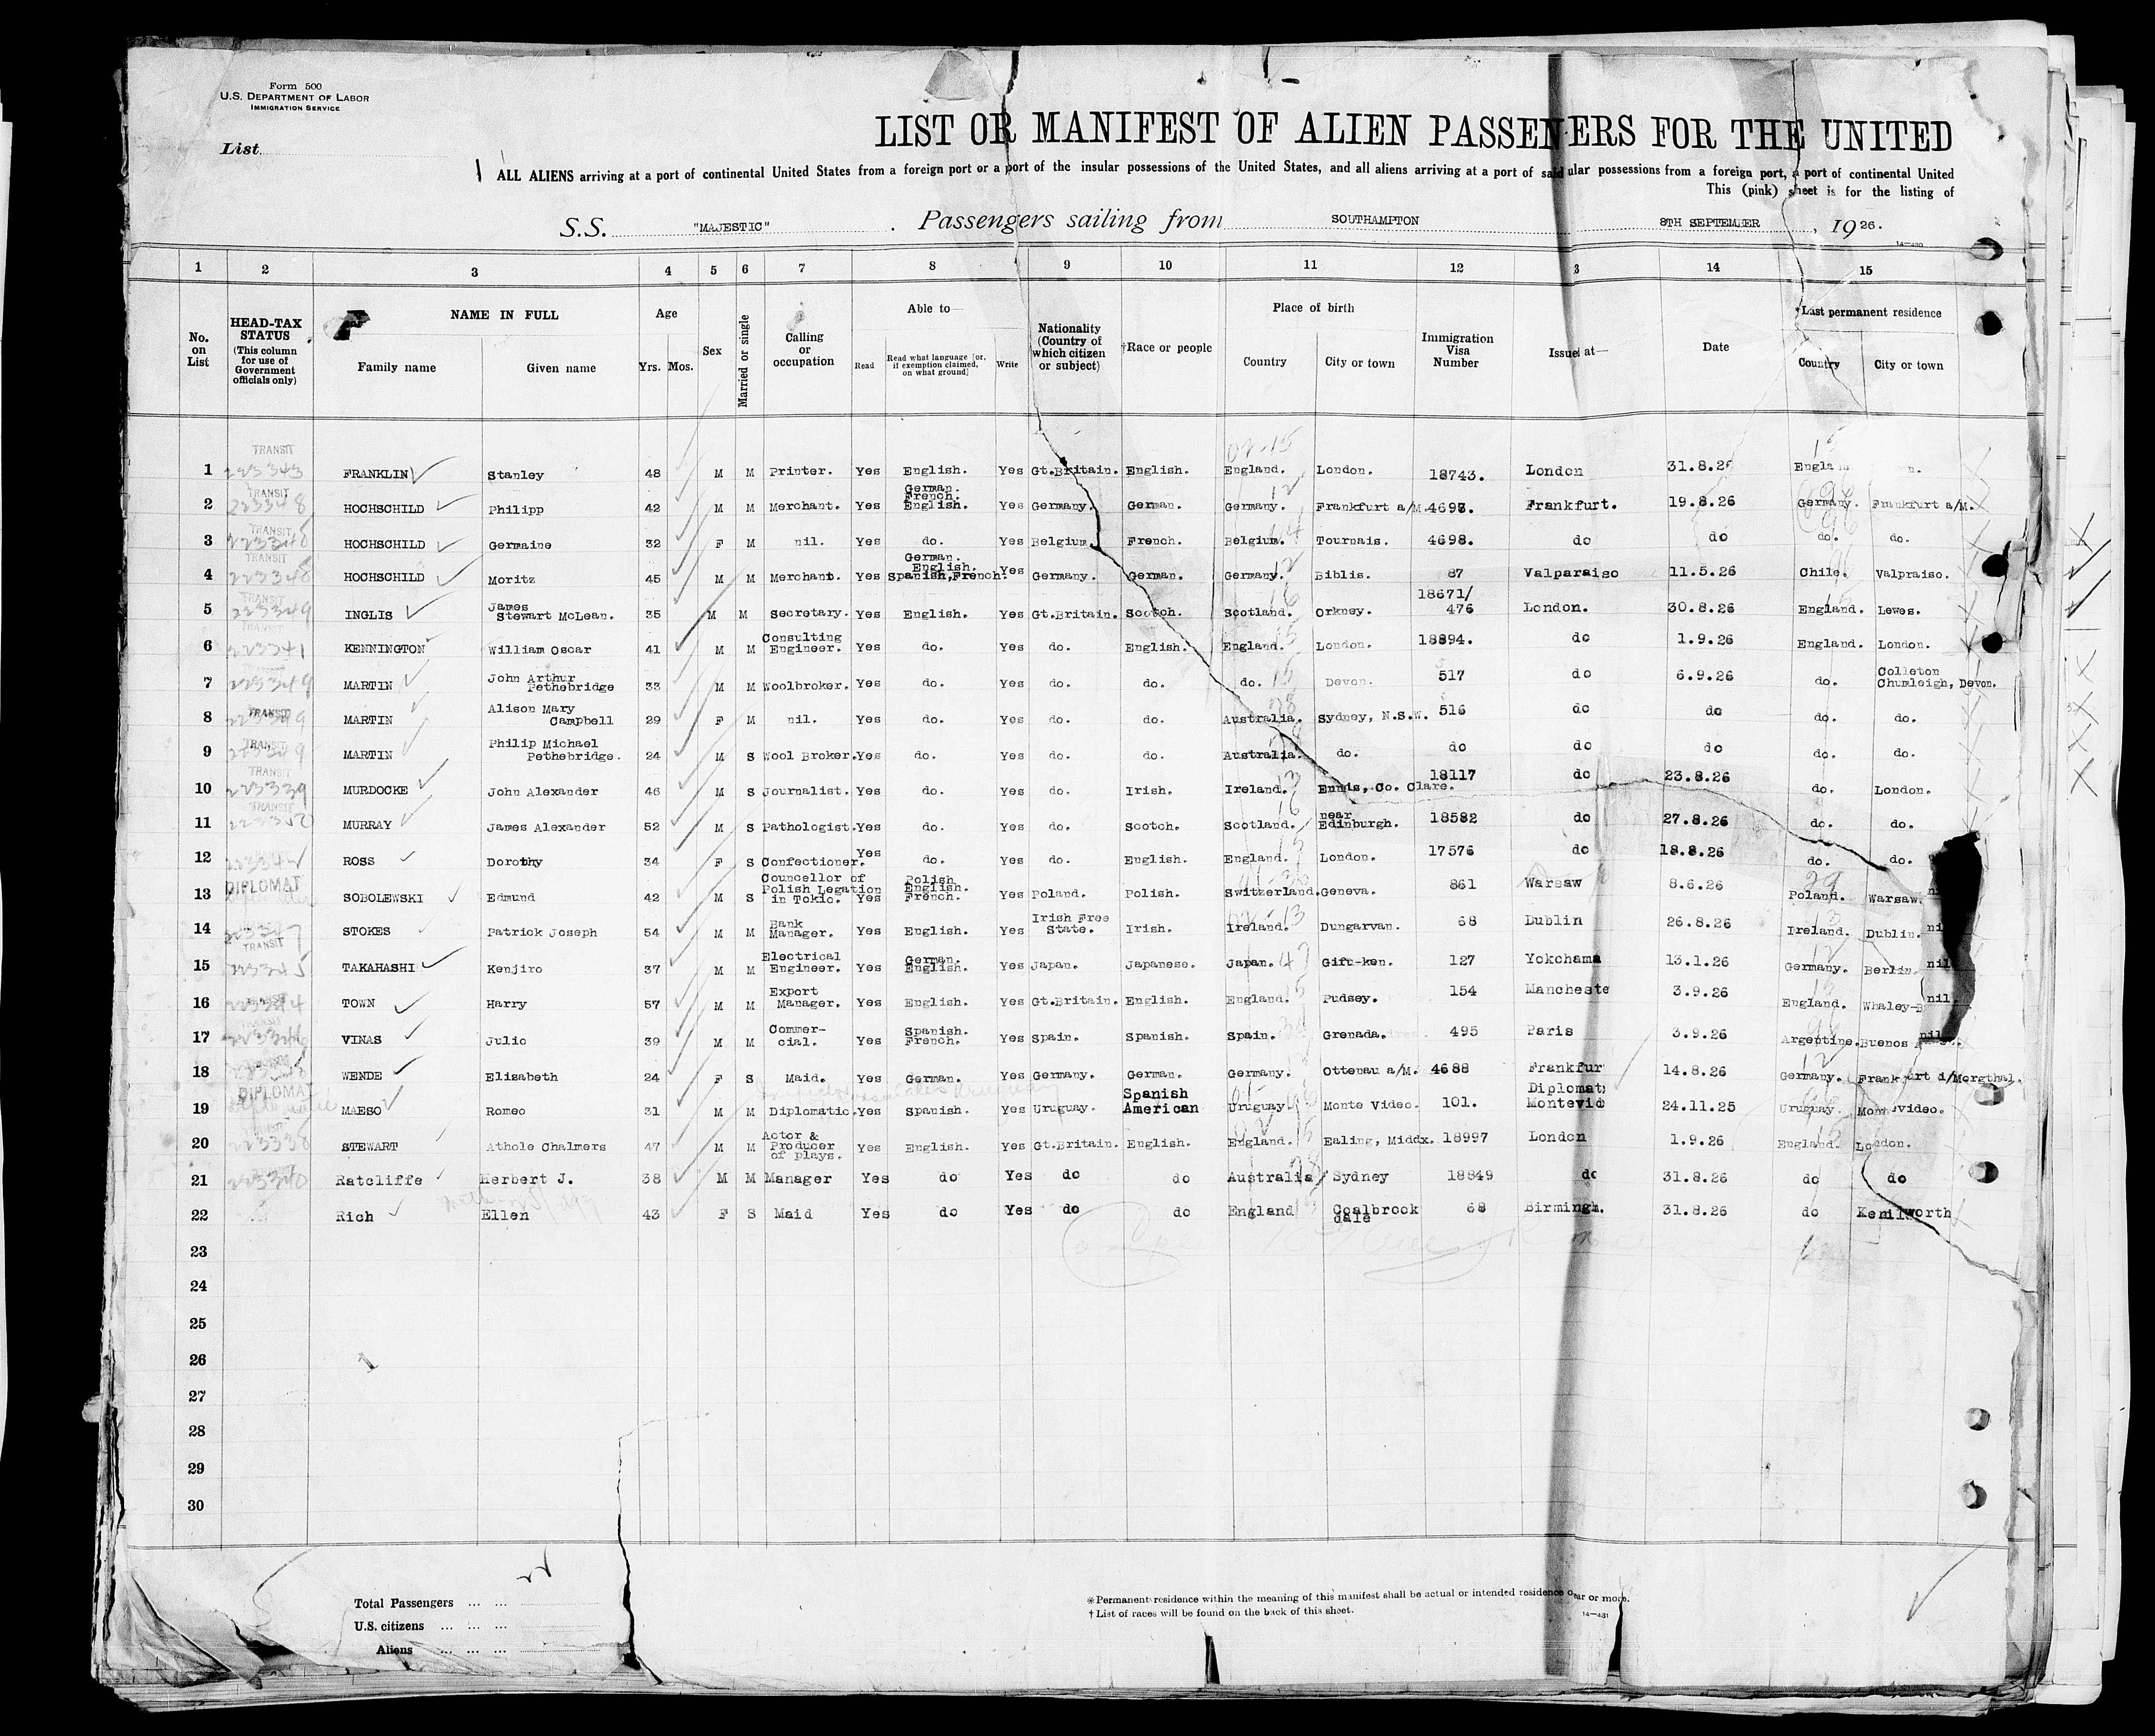 Form 500
U.S. DEPARTMENT OF LABOR
IMMIGRATION SERVICE
List
LIST OR MANIFEST OF ALIEN PASSENERS FOR THE UNITED
ALL ALIENS arriving at a port of continental United States from a foreign port or a port of the insular possessions of the United States, and all aliens arriving at a port of said ular possessions from a foreign port, a port of continental United
This (pink) sheet is for the listing of
S.S. "MAJESTIC" . Passengers sailing from SOUTHAMPTON 8TH SEPTEMBER , 1926.
14-430
1 2 3 4 5 6 7 8 9 10 11 12 3 14 15
No. on List
HEAD-TAX STATUS
(This column for use of Government officials only)
NAME IN FULL
Family name Given name
Age
Yrs. Mos.
Sex
Married or single
Calling or occupation
Able to—
Read Read what language [or, if exemption claimed, on what ground] Write
Nationality (Country of which citizen or subject)
†Race or people
Place of birth
Country City or town
Immigration Visa Number
Issued at—
Date
*Last permanent residence
Country City or town
1 TRANSIT 223343 FRANKLIN Stanley 48 M M Printer. Yes English. Yes Gt.Britain. English. England. London. 18743. London 31.8.26 Engla n.
2 TRANSIT 223348 HOCHSCHILD Philipp 42 M M Merchant. Yes German. French. English. Yes Germany. German. Germany. Frankfurt a/M. 4697. Frankfurt. 19.8.26 Germany. Frankfurt a/M.
3 TRANSIT 223348 HOCHSCHILD Germaine 32 F M nil. Yes do. Yes Belgium. French. Belgium. Tournais. 4698. do do do. do.
4 TRANSIT 223348 HOCHSCHILD Moritz 45 M M Merchant. Yes German. English. Spanish,French. Yes Germany. German. Germany. Biblis. 87 Valparaiso 11.5.26 Chile. Valpraiso.
5 TRANSIT 223349 INGLIS James Stewart McLean. 35 M M Secretary. Yes English. Yes Gt.Britain. Scotch. Scotland. Orkney. 18671/476 London. 30.8.26 England. Lewes.
6 TRANSIT 223341 KENNINGTON William Oscar 41 M M Consulting Engineer. Yes do. Yes do. English. England. London. 18894. do 1.9.26 England. London.
7 223349 MARTIN John Arthur Pethebridge 33 M M Woolbroker. Yes do. Yes do. do. do. Devon. 517 do 6.9.26 do. Colleton Chumleigh, Devon.
8 TRANSIT MARTIN Alison Mary Campbell 29 F M nil. Yes do. Yes do. do. Australia. Sydney, N.S.W. 516 do do do. do.
9 TRANSIT MARTIN Philip Michael Pethebridge. 24 M S Wool Broker. Yes do. Yes do. do. Australia. do. do do do do. do.
10 TRANSIT 223339 MURDOCKE John Alexander 46 M S Journalist. Yes do. Yes do. Irish. Ireland. Ennis, Co. Clare. 18117 do 23.8.26 do. London.
11 TRANSIT MURRAY James Alexander 52 M S Pathologist. Yes do. Yes do. Scotch. Scotland. near Edinburgh. 18582 do 27.8.26 do. do.
12 ROSS Dorothy 34 F S Confectioner. Yes do. Yes do. English. England. London. 17576 do 18.8.26 do. do.
13 DIPLOMAT SOBOLEWSKI Edmund 42 M S Councellor of Polish Legation in Tokio. Yes Polish English. French. Yes Poland. Polish. Switzerland. Geneva. 861 Warsaw 8.6.26 Poland. Warsaw.
14 STOKES Patrick Joseph 54 M M Bank Manager. Yes English. Yes Irish Free State. Irish. Ireland. Dungarvan. 68 Dublin 26.8.26 Ireland. Dublin. nil
15 TRANSIT 223345 TAKAHASHI Kenjiro 37 M M Electrical Engineer. Yes German. English. Yes Japan. Japanese. Japan. Gift-ken. 127 Yokohama 13.1.26 Germany. Berlin. nil
16 TOWN Harry 57 M M Export Manager. Yes English. Yes Gt.Britain. English. England. Pudsey. 154 Mancheste 3.9.26 England. Whaley-B nil
17 VINAS Julio 39 M M Commer-cial. Yes Spanish. French. Yes Spain. Spanish. Spain. Grenada. 495 Paris 3.9.26 Argentine. Buenos nil
18 WENDE Elizabeth 24 F S Maid. Yes German. Yes Germany. German. Germany. Ottenau a/M. 4688 Frankfur 14.8.26 Germany. Frankfurt d/Morgthal.
19 DIPLOMAT MAESO Romeo 31 M M Diplomatic. Yes Spanish. Yes Uruguay. Spanish American Uruguay. Monte Video. 101. Diplomat: Montevid 24.11.25 Uruguay. Montevideo.
20 TRANSIT STEWART Athole Chalmers 47 M M Actor & Producer of plays. Yes English. Yes Gt.Britain. English. England. Ealing, Middx. 18997 London 1.9.26 England. London.
21 223340 Ratcliffe Herbert J. 38 M M Manager Yes do Yes do do Australia Sydney 18849 do 31.8.26 do do
22 Rich Ellen 43 F S Maid Yes do Yes do do England Coalbrook dale 68 Birmingh. 31.8.26 do Kenilworth
23
24
25
26
27
28
29
30
Total Passengers ... ...
U.S. citizens ... ... ...
Aliens ... ... ...
*Permanent residence within the meaning of this manifest shall be actual or intended residence o ear or more.
† List of races will be found on the back of this sheet.
14-431